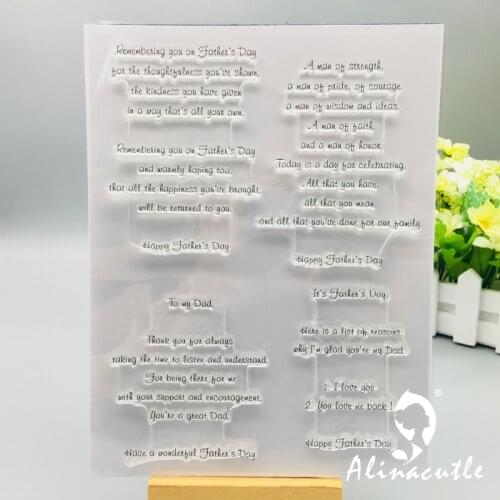 Remembering you on Father's Day
for the thoughtfulness you've shown,
the kindness you have given
in a way that's all your own.
Remembering you on Father's Day
and warmly hoping too,
that all the happiness you've brought,
will be returned to you.
Happy Father's Day
A man of strength,
a man of pride, of courage
a man of wisdom and ideas.
A man of faith,
and a man of honor.
Today is a day for celebrating,
All that you have,
all that you mean,
and all that you've done for our family.
Happy Father's Day
To my Dad,
Thank you for always
taking the time to listen and understand.
For being there for me
with your support and encouragement.
You're a great Dad.
Have a wonderful Father's Day
It's Father's Day,
Here is a list of reasons,
why I'm glad you're my Dad.
1. I love you
2. You love me back!
Happy Father's Day
Alinacutle
®